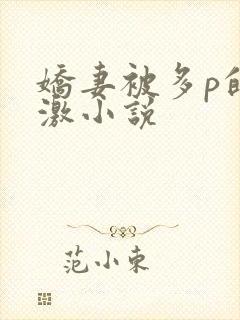 嬌妻被多p的
激小說
范小東